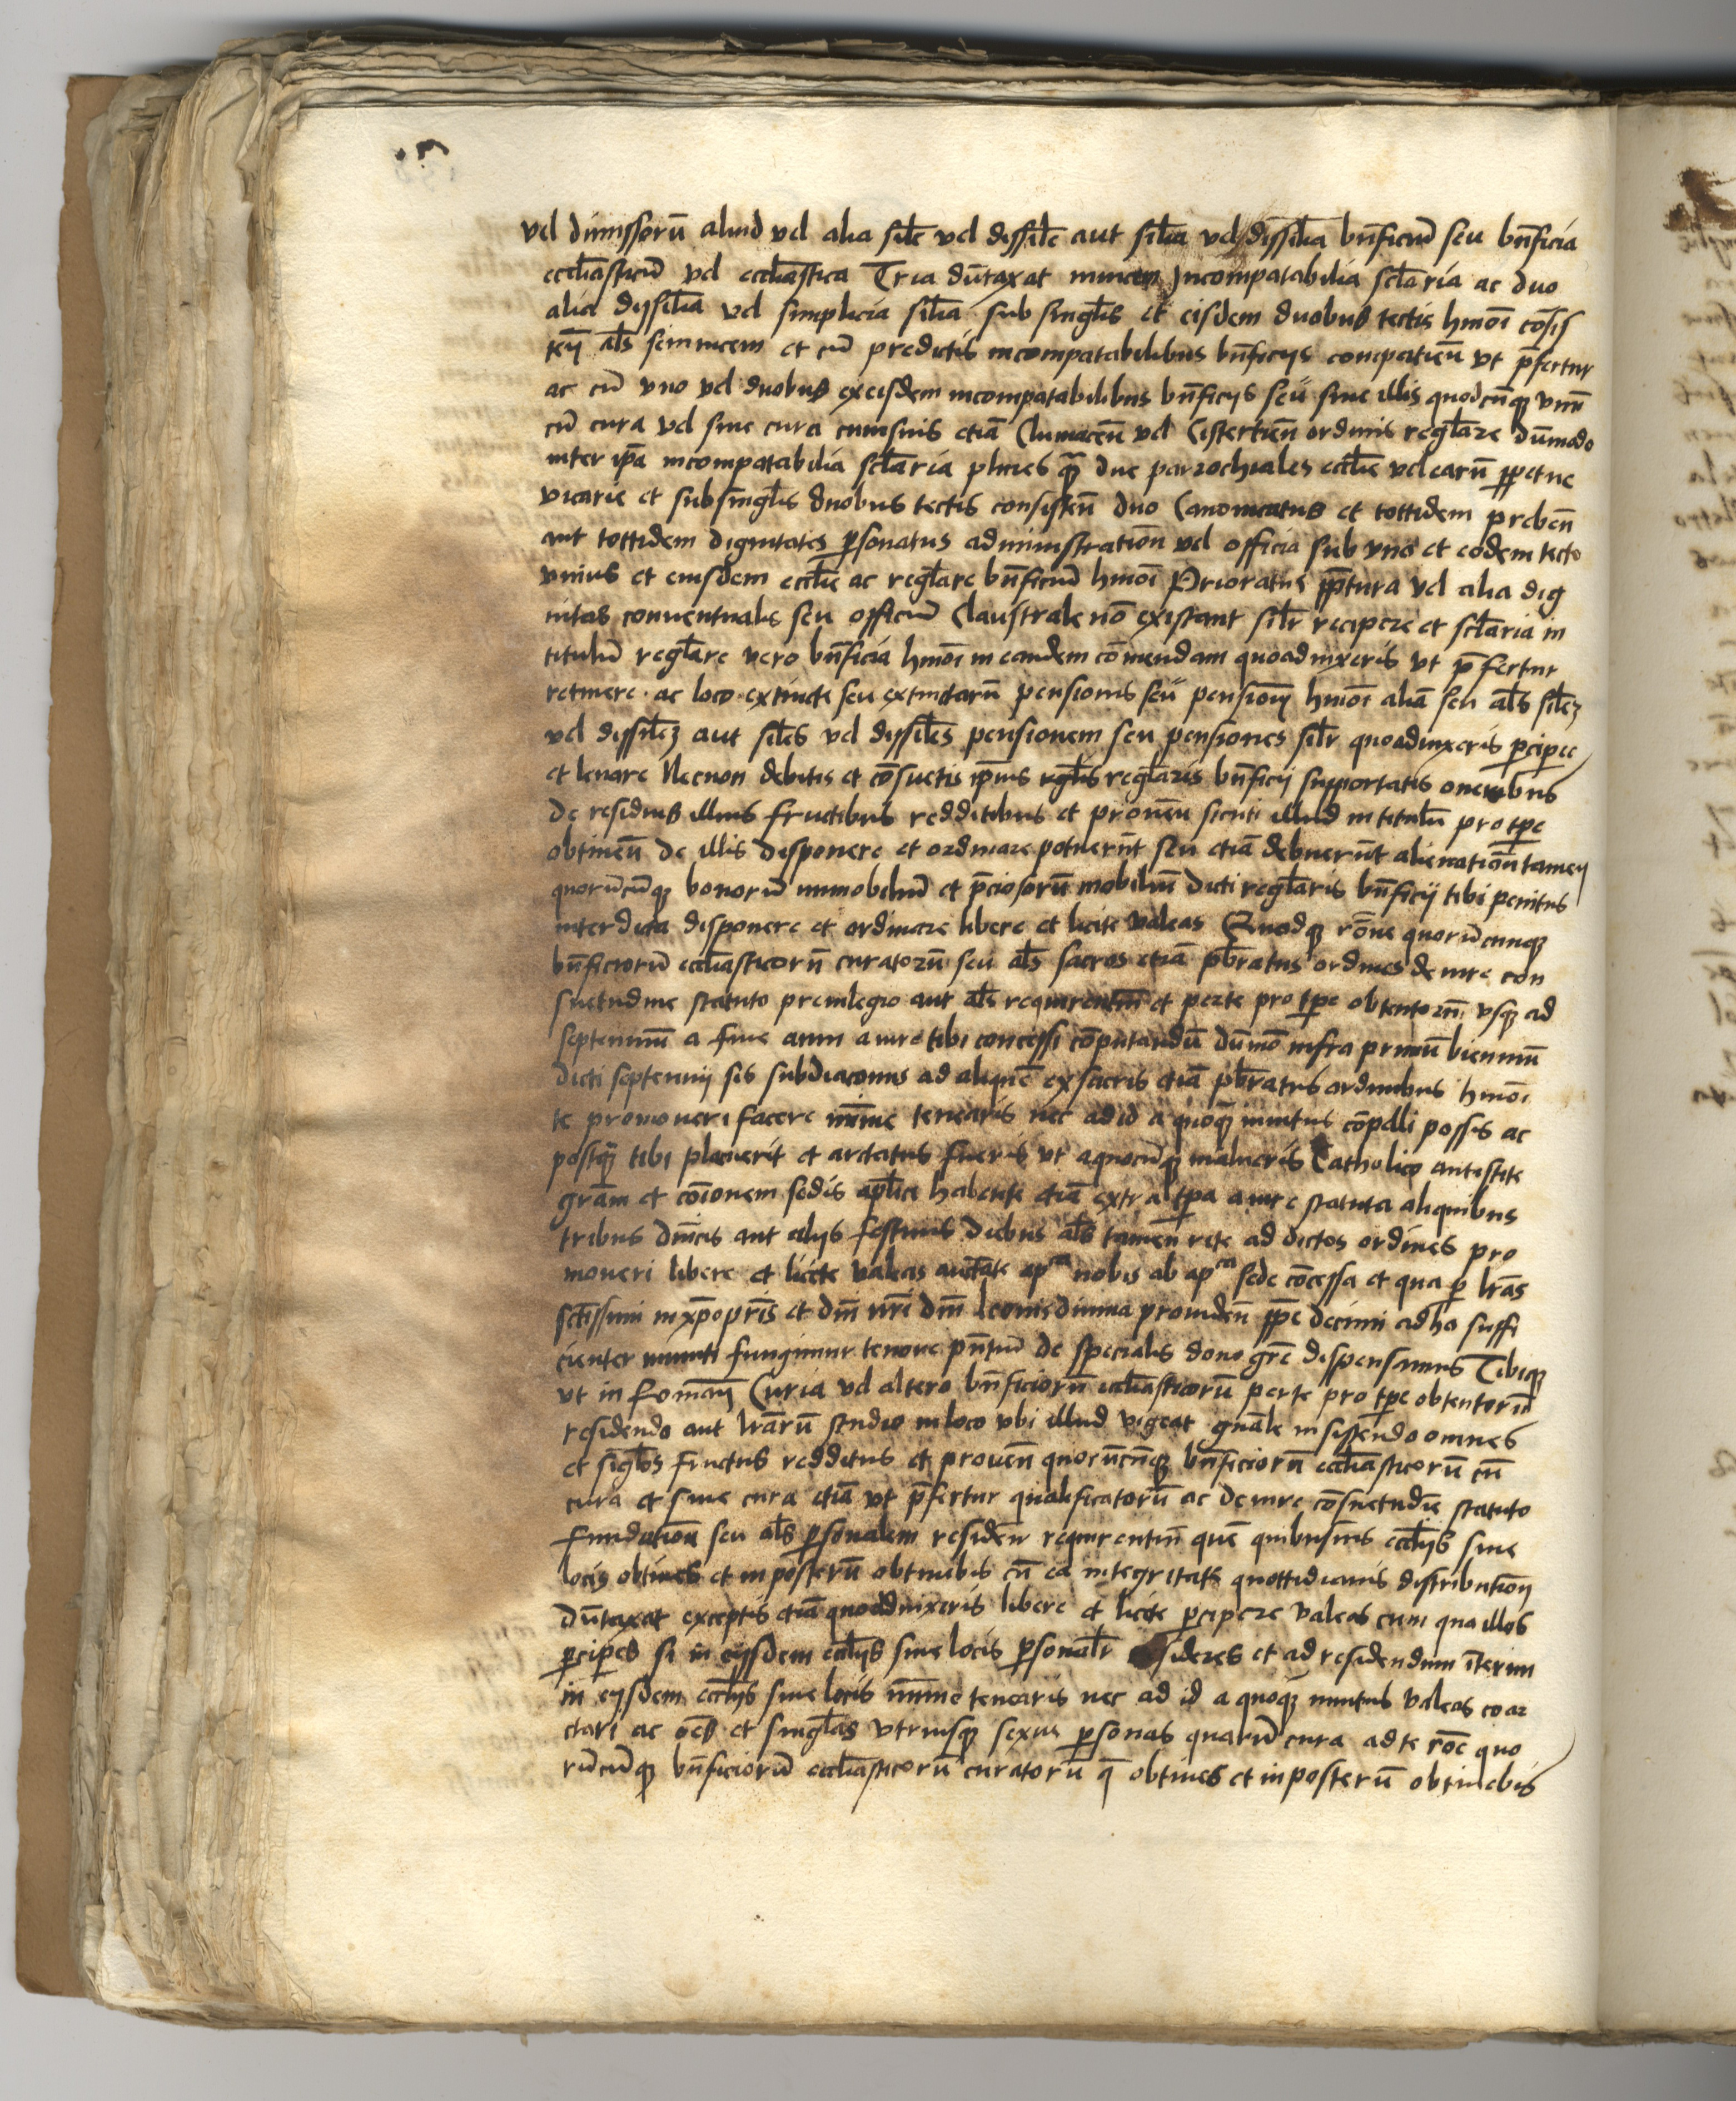 vel dimissorū aliud vel alia sile vel dissile aut silia vel dissilia bn̄ficiū seu bn̄ficia
eccliasticū vel eccliastica Tria dūtaxat invicem Incompatabilia sclaria ac duo
alia dissilia vel simplicia silia sub singlis et eisdem duobus tectis hmōi cōsis
ten̄ als seinvicem et cū predictis incompatabilibus bn̄ficijs compatien̄ vt p̄fertur
ac cū vno vel duobus ex eisdem incompatabilibus bn̄ficijs seu sine illis quodcūqꝫ vnū
cū cura vel sine cura cuiusuis etiā Cluniacen̄ vel Cistertien̄ ordinis reglare dūmodo
inter ip̄a incompatabilia sclaria plures qꝫ due parrochiales ecclie vel earū ꝑpetue
vicarie et sub singlis duobus tectis consisten̄ duo Canonicatus et tottidem preben̄
aut tottidem dignitates ꝑsonatus administration̄ vel officia sub vno et eodem tecto
vnius et eiusdem ecclie ac reglare bn̄ficiū hmōi Prioratus p̄ptura vel alia dig
nitas conuentualis seu officiū Claustrale nō existant silr recipere et sclaria in
titulū reglare vero bn̄ficia hmōi in eandem cōmendam quoad vixeris vt p̄fertur
retinere ac loco extincte seu extinctarū pensionis seu pensionū hmōi aliā seu als silēꝫ
vel dissilēꝫ aut siles vel dissiles pensionem seu pensiones silr quoad vixeris ꝑcipe
et leuare Necnon debitis et cōsuetis ip̄ius reglaris bn̄ficij supportatis oneribus
de residuis illius fructibus redditibus et prouen̄ sicuti illud in titulū pro tp̄e
obtinen̄ de illis disponere et ordinare potuerūt seu etiā debuerūt alienation̄ tamen
quorūcūqꝫ bonorū immobiliū et p̄ciosorū mobiliū dicti reglaris bn̄ficij tibi penitus
interdicta disponere et ordinare libere et licite valeas Quodqꝫ rōne quorūcunqꝫ
bn̄ficiorū eccliasticorū curatorū seu als sacros etiā pbratus ordines de iure con
suetudine statuto preuilegio aut als requirentiū et per te pro tp̄e obtentorū vsqꝫ ad
septenniū a fine anni a iure tibi concessi cōputandū dūmō infra primū bienniū
dicti septennij sis subdiaconus ad aliquē ex sacris etiā pbratus ordinibus hmōi
te promoueri facere minime tenearis nec ad id a quoqꝫ inuitus cōpelli possis ac
postqꝫ tibi placuerit et arctatus fueris vt a quocūqꝫ malueris Catholico antistite
gram et cōionem sedis aplice habente etiā extra tp̄a a iure statuta aliquibus
tribus dnicis aut alijs festiuis diebus als tamen rite ad dictos ordines pro
moueri libere et licite valeas auctate apca nobis ab apca sede cōcessa et qua ꝑ lras
sctissimi in xpo pris et dni nri dni Leonis diuina prouiden̄ pp̄e decimi ad ho suffi
cienter muniti fungimur tenore pn̄tiū de specialis dono gre dispensamus Tibiqꝫ
vt in Roman̄ Curia vel altero bn̄ficiorū eccliasticorū per te pro tp̄e obtentorū
residendo aut lrarū studio in loco vbi illud vigeat gn̄ale insistendo omnes
et singlos fructus redditus et prouen̄ quorūcūqꝫ bn̄ficiorū eccliasticorū cū
cura et sine cura etiā vt p̄fertur qualificatorū ac de iure cōsuetudīe statuto
fundation̄ seu als ꝑsonalem residen̄ requirentiū que in quibusuis eccliis siue
locis obtines et in posterū obtinebis cū ea integritate quottidianis distribution̄
dūtaxat exceptis etiā quoad vixeris libere et licite ꝑcipere valeas cum qua illos
ꝑciperes si in eijsdem ecclijs siue locis ꝑsonalr sideres et ad residendum īterim
in eijsdem ecclijs siue locis minime tenearis nec ad id a quoqꝫ inuitus valeas coar
ctari ac oēs et singlas vtriusqꝫ sexus ꝑsonas quarū cura ad te rōe quo
rūcūqꝫ bn̄ficiorū eccliasticorū curatorū q̄ obtines et in posterū obtinebis